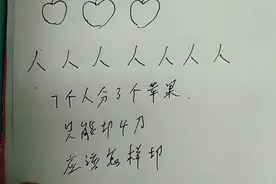 人 人 人 人 人 人 人
7个人分3个苹果.
只能切4刀
应该怎样切